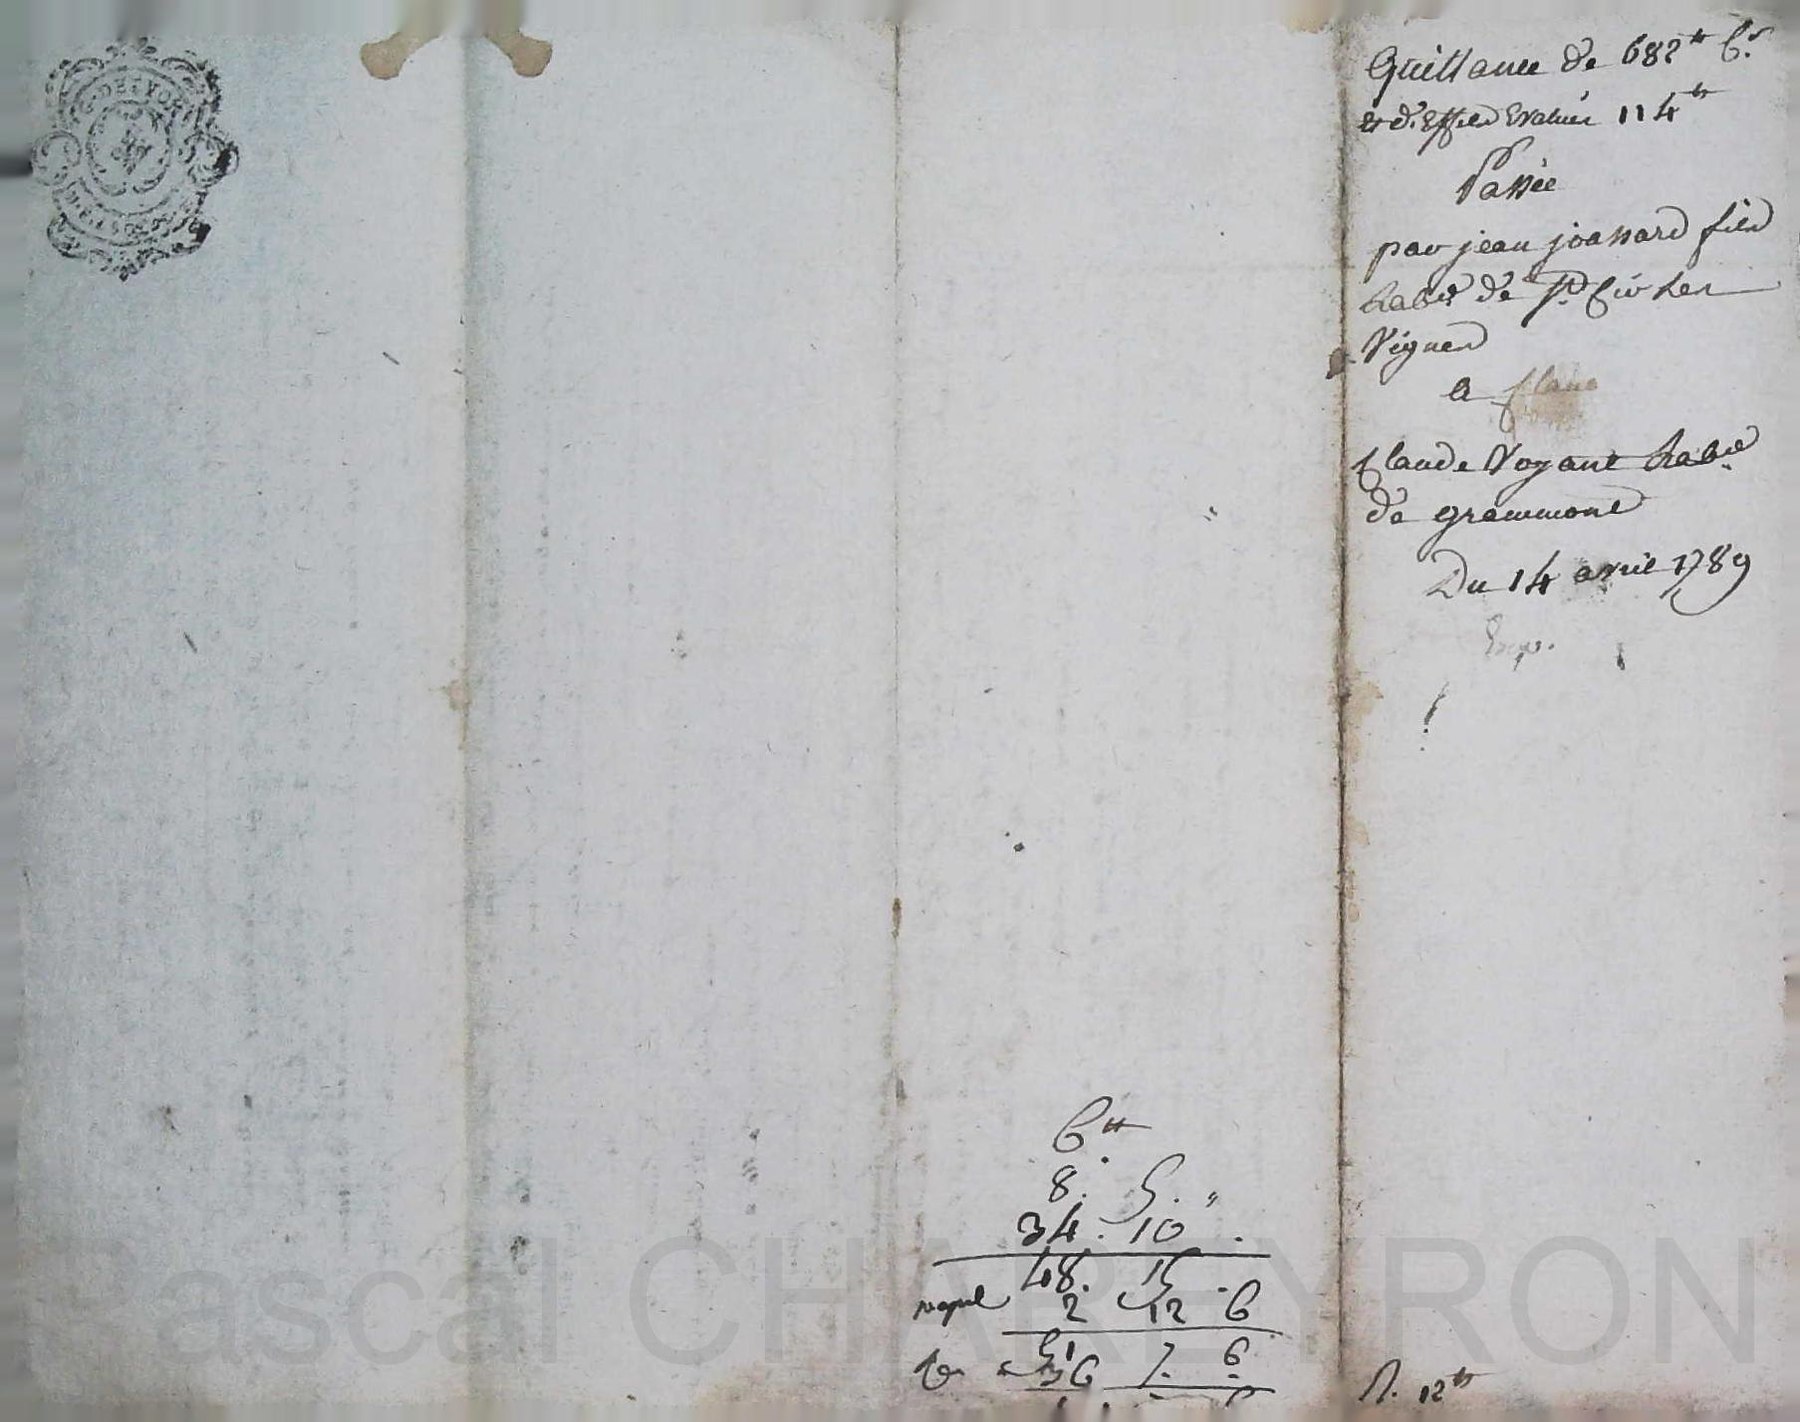 G. DE LYON
Quittance de 682 ᵗᵗ 6.ˢ
et d'Effets Evalués 114 ᵗᵗ
Passée
par jean joassard fils
habt de St. Cir les
Vignes
a Clau
Claude Voyant habt.
de grammont
Du 14 avril 1789
Exp.
6 ᵗᵗ
8. 5. "
34. 10 .
48. 15 .
2 12 6
51 7. 6
36
12 ᵗᵗ
Pascal CHAREYRON